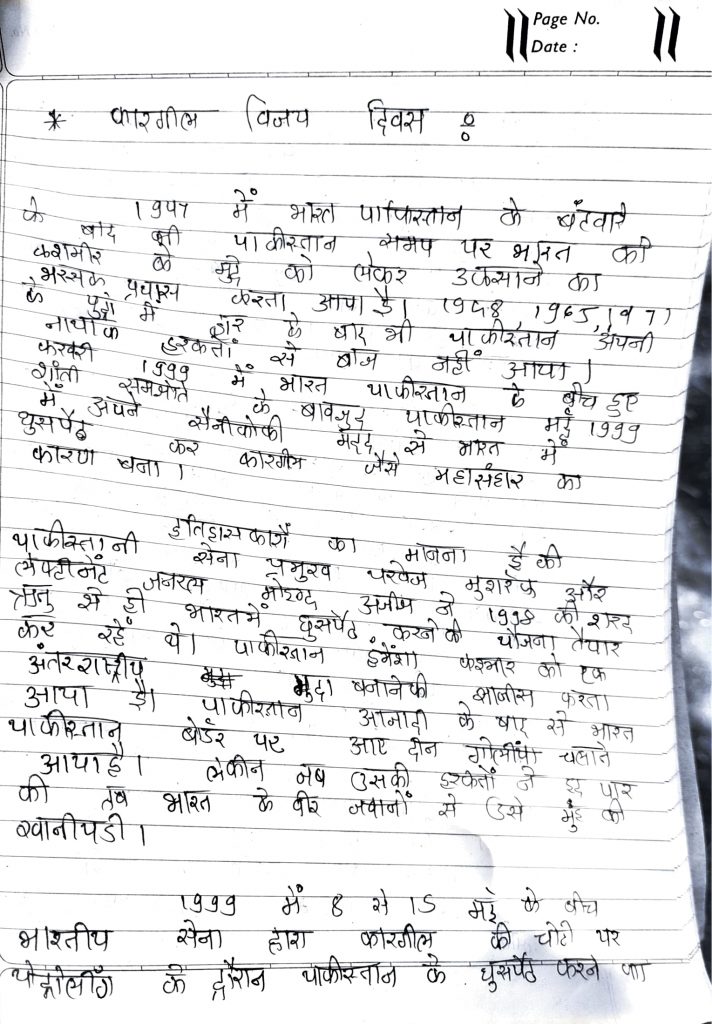 Page No.
Date :
* कारगील विजय दिवस :
1947 में भारत पाकिस्तान के बंटवारे
के बाद भी पाकीस्तान समय पर भारत को
कशमीर के मुद्दे को लेकर उकसाने का
भरसक प्रयास करता आया है। 1948, 1965, 1971
के युद्धो में हार के बाद भी पाकीस्तान अपनी
नापाक हरकतों से बाज नहीं आया।
फरवरी 1999 में भारत पाकीस्तान के बीच हुए
शांती समझोते के बावजुद पाकीस्तान मई 1999
में अपने सैनीकोकी मदद से भारत में
घुसपैठ कर कारगील जैसे महासंहार का
कारण बना।
इतिहासकारों का मानना है की
पाकीस्तानी सेना प्रमुख परवेज मुशर्रफ और
लेफ्टीनेंट जनरल मोहम्मद अजीज ने 1998 की शरद
ऋतु से ही भारतमें घुसपैठ करनेकी योजना तैयार
कर रहें थे। पाकीस्तान हंमेशा कश्मीर को एक
अंतरराष्ट्रीय मुद्दा बनानेकी साजीस करता
आया है। पाकीस्तान आजादी के बाद से भारत
पाकीस्तान बोर्डर पर आए दीन गोलीयां चलाते
आया है। लेकीन जब उसकी हरकतों ने हद पार
की तब भारत के वीर जवानों से उसे मुंह की
खानी पडी।
1999 में 8 से 15 मई के बीच
भारतीय सेना द्वारा कारगील की चोटी पर
पेट्रोलींग के दौरान पाकीस्तान के घुसपैठ करने का